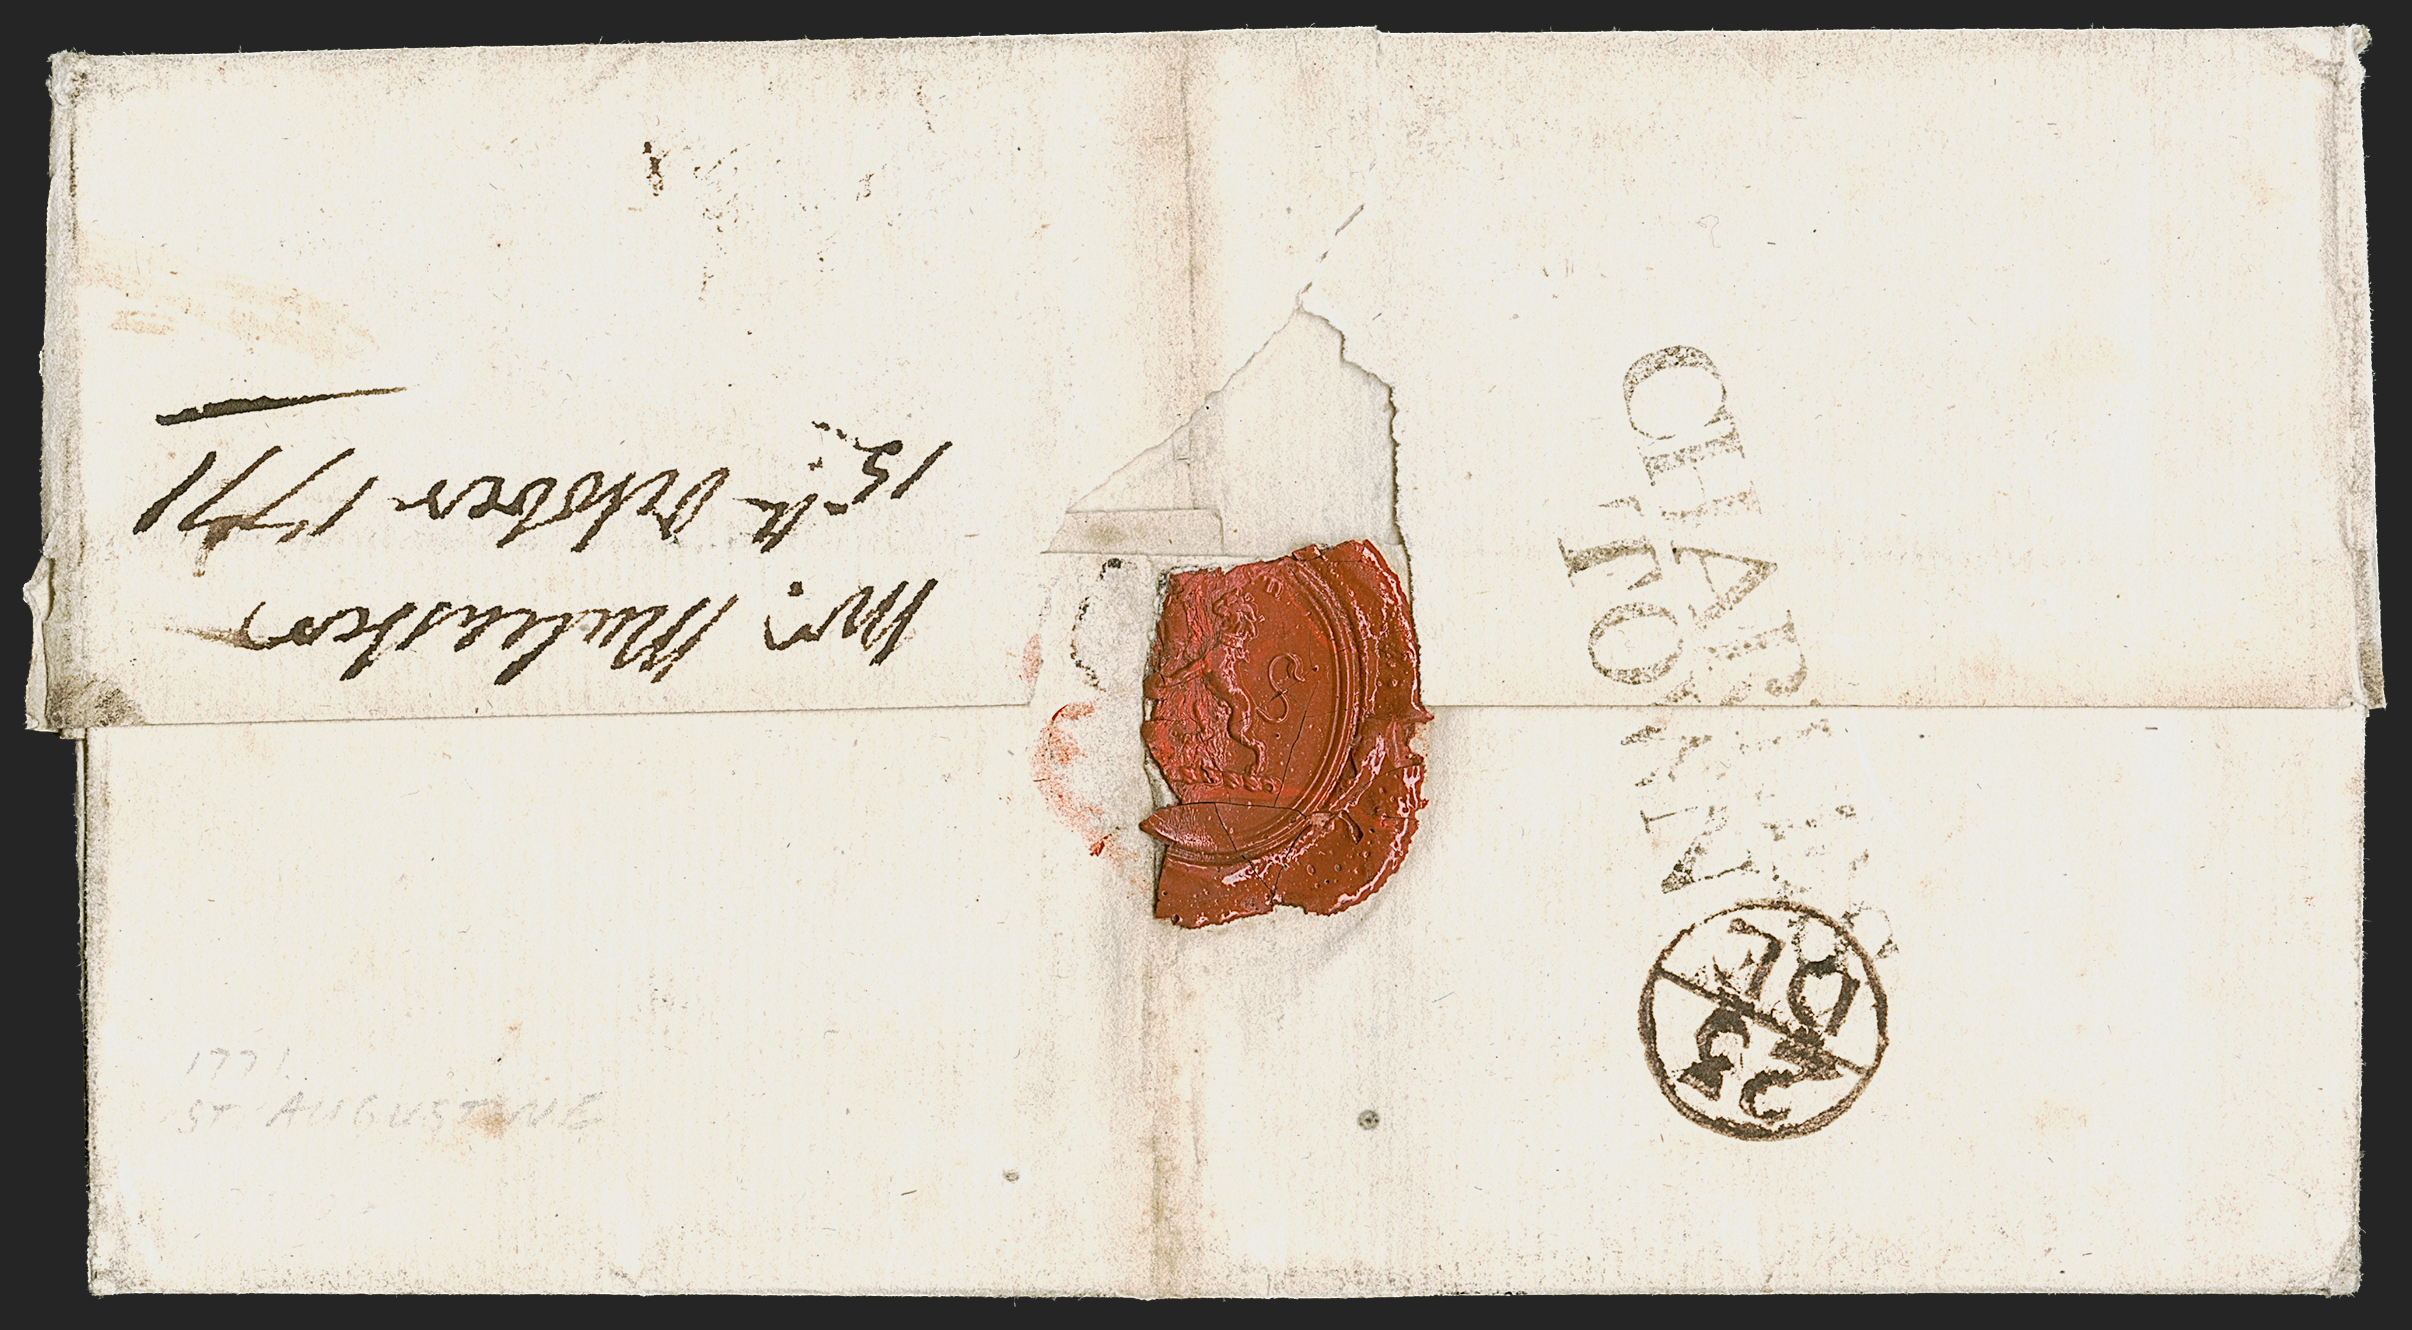 Mr. Mulcaster
15th October 1771
CHARLES
TOWN
1771
ST AUGUSTINE